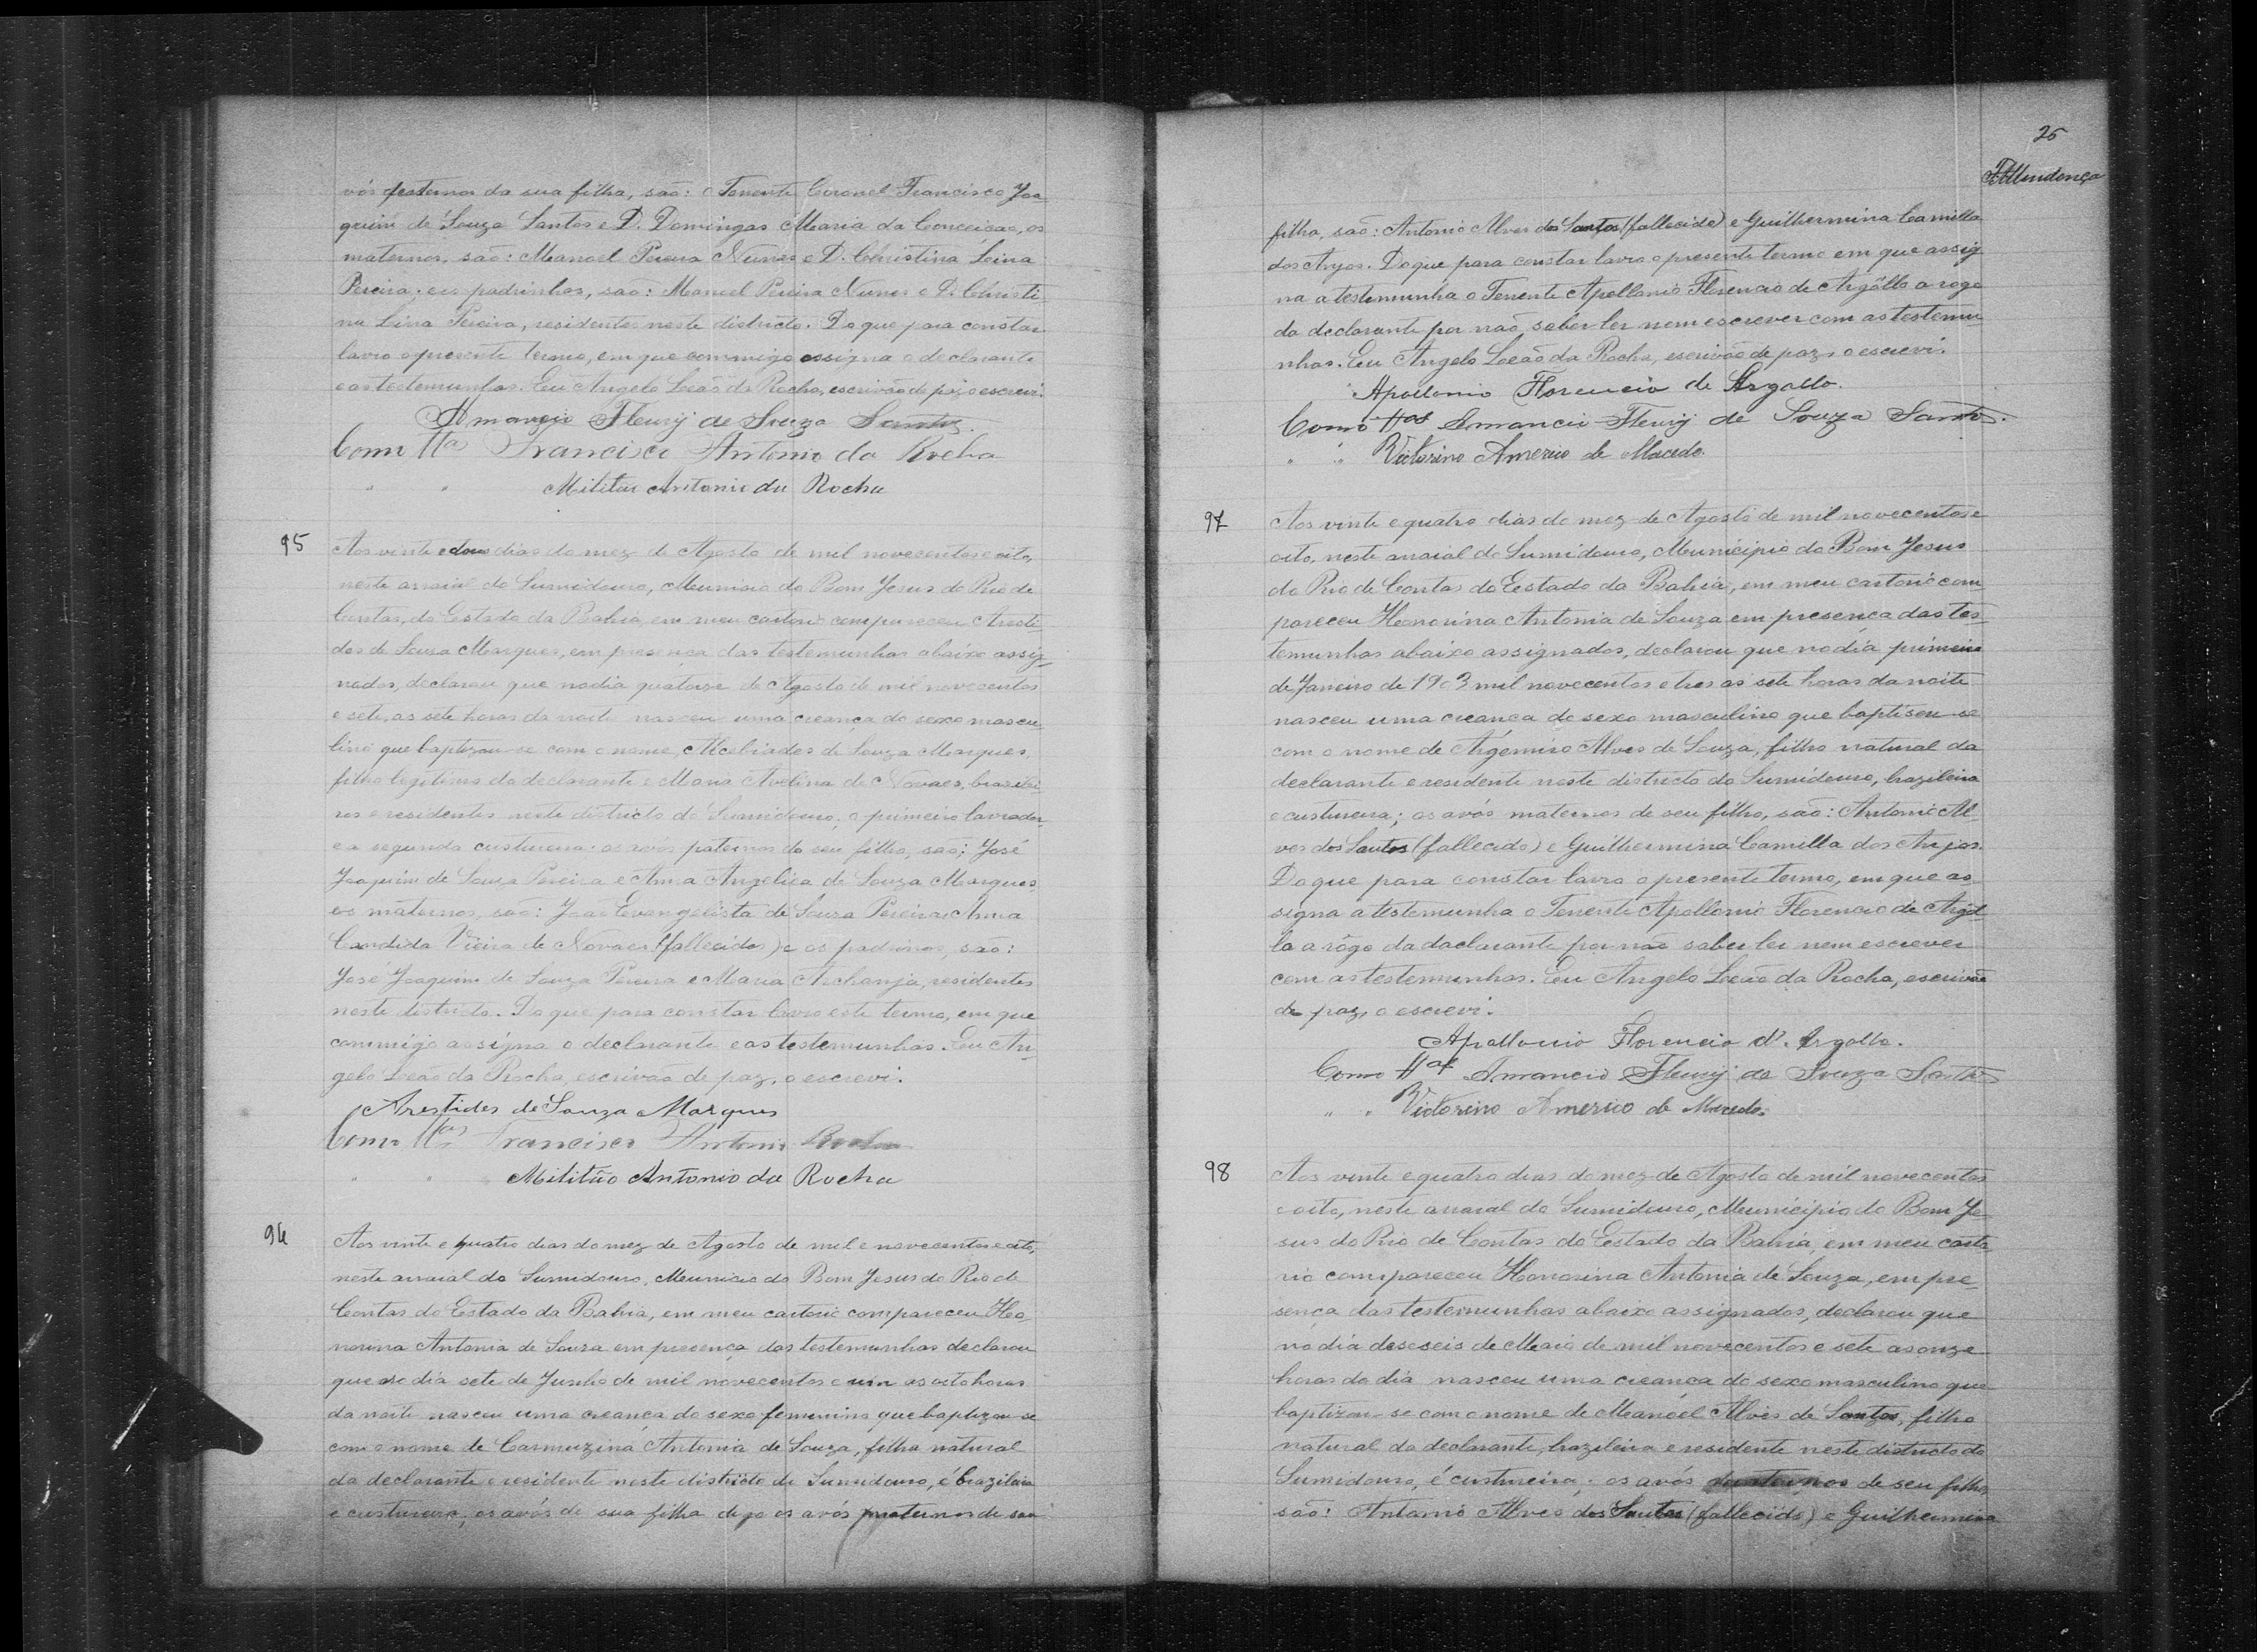 vós paternos da sua filha, são: o Tenente Coronel Francisco Joa
quim de Souza Santos e D. Domingas Maria da Conceicao, os
maternos, são: Manoel Pereira Nunes e D. Christina Leina
Pereira; e os padrinhos, são: Manoel Pereira Nunes e D. Christi
na Lina Pereira, residentes neste districto. Do que para constar
lavro o presente termo, em que commigo assigna o declarante
e as testemunhas. Eu Angelo Leão da Rocha, escrivão de paz o escrevi.
Amancio Fleury de Souza Santos.
Como ttas Francisco Antonio da Rocha
" " Militão Antonio da Rocha
95
Aos vinte e dous dias do mez de Agosto de mil novecentos e oito,
neste arraial do Sumidouro, Municio do Bom Jesus do Rio de
Contas, do Estado da Bahia, em meu cartorio compareceu Aresti-
des de Souza Marques, em presença das testemunhas abaixo assig-
nados, declarou que no dia quatorze de Agosto de mil novecentos
e sete, as sete horas da noite nasceu uma creança do sexo mascu
lino que baptizou-se com o nome, Alcebiades de Souza Marques,
filho legitimo do declarante e Maria Avelina de Novaes, brazilei
ros e residentes neste districto do Sumidouro, o primeiro lavrador
e a segunda custureira: os avós paternos do seu filho, são; José
Joaquim de Souza Pereira e Anna Angelica de Souza Marques
e os maternos, são: João Evangelista de Souza Pereira e Anna
Candida Vieira de Novaes (fallecidos) e os padrinos, são:
José Joaquim de Souza Pereira e Maria Archanja, residentes
neste districto. Do que para constar lavro este termo, em que
commigo assigna o declarante e as testemunhas. Eu An-
gelo Leão da Rocha, escrivão de paz, o escrevi.
Arestides de Souza Marques
Como ttas Francisco Antonio Rocha
" " Militão Antonio da Rocha
96
Aos vinte e quatro dias do mez de Agosto de mil e novecentos e oito,
neste arraial do Sumidouro, Municio do Bom Jesus do Rio de
Contas do Estado da Bahia, em meu cartorio compareceu Ho
norina Antonia de Souza em presença das testemunhas declarou
que no dia sete de Junho de mil novecentos e um as oito horas
da noite nasceu uma creança do sexo femenino que baptizou-se
com o nome de Carmuzina Antonia de Souza, filha natural
da declarante e residente neste districto de Sumidouro, é brazileira
e custureira; os avós de sua filha digo os avós maternos de sua
25
filha, são: Antonio Alves dos Santos (fallecido) e Guilhermina Camilla
dos Anjos. Do que para constar lavro o presente termo em que assig
na a testemunha o Tenente Apollonio Florencio de Argôllo a rogo
da declarante por não saber ler nem escrever com as testemu-
nhas. Eu Angelo Leão da Rocha, escrivão de paz, o escrevi.
Apollonio Florencio de Argollo.
Como ttas Amancio Fleury de Souza Santos.
" " Victorino Americo de Macedo.
97
Aos vinte e quatro dias do mez de Agosto de mil novecentos e
oito, neste arraial do Sumidouro, Municipio do Bom Jesus
do Rio de Contas do Estado da Bahia, em meu cartorio com
pareceu Honorina Antonia de Souza em presença das tes-
temunhas abaixo assignados, declarou que no dia primeiro
de Janeiro de 1903 mil novecentos e tres as sete horas da noite
nasceu uma creança do sexo masculino que baptisou-se
com o nome de Argemiro Alves de Souza, filho natural da
declarante e residente neste districto do Sumidouro, brazileira
e custureira; os avós maternos de seu filho, são: Antonio Al
ves dos Santos (fallecido) e Guilhermina Camilla dos Anjos.
Do que para constar lavro o presente termo, em que as
signa a testemunha o Tenente Apollonio Florencio de Argol
lo a rôgo da daclarante por não saber ler nem escrever
com as testemunhas. Eu Angelo Leão da Rocha, escrivão
de paz, o escrevi.
Apollonio Florencio d'Argollo.
Como ttas Amancio Fleury de Souza Santos
" " Victorino Americo de Macedo.
98
Aos vinte e quatro dias do mez de Agosto de mil novecentos
e oito, neste arraial do Sumidouro, Municipio do Bom Je
sus do Rio de Contas do Estado da Bahia, em meu carto
rio compareceu Honorina Antonia de Souza, em pre
sença das testemunhas abaixo assignados, declarou que
no dia deseseis de Maio de mil novecentos e sete as onze
horas do dia nasceu uma creança do sexo masculino que
baptizou-se com o nome de Manoel Alves de Santos, filho
natural da declarante, brazileira e residente neste districto do
Sumidouro, é custureira; os avós maternos de seu filho,
são: Antonio Alves dos Santos (fallecido) e Guilhermina